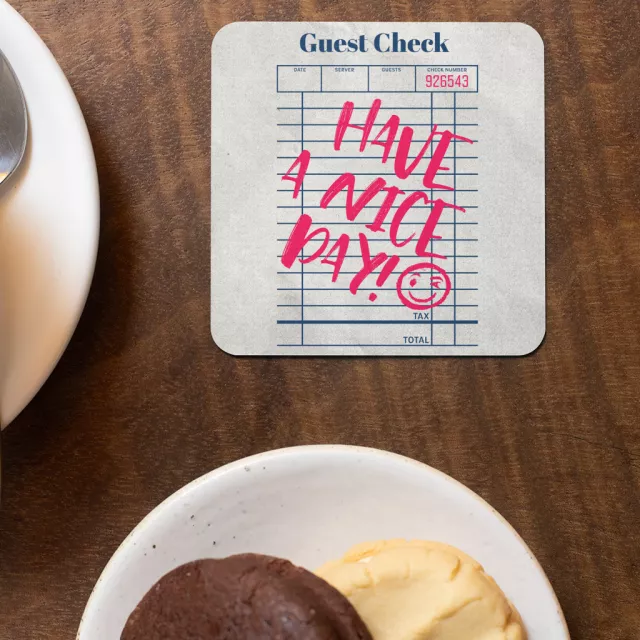 Guest Check
DATE SERVER GUESTS CHECK NUMBER
926543
HAVE
A NICE
DAY!
TAX
TOTAL